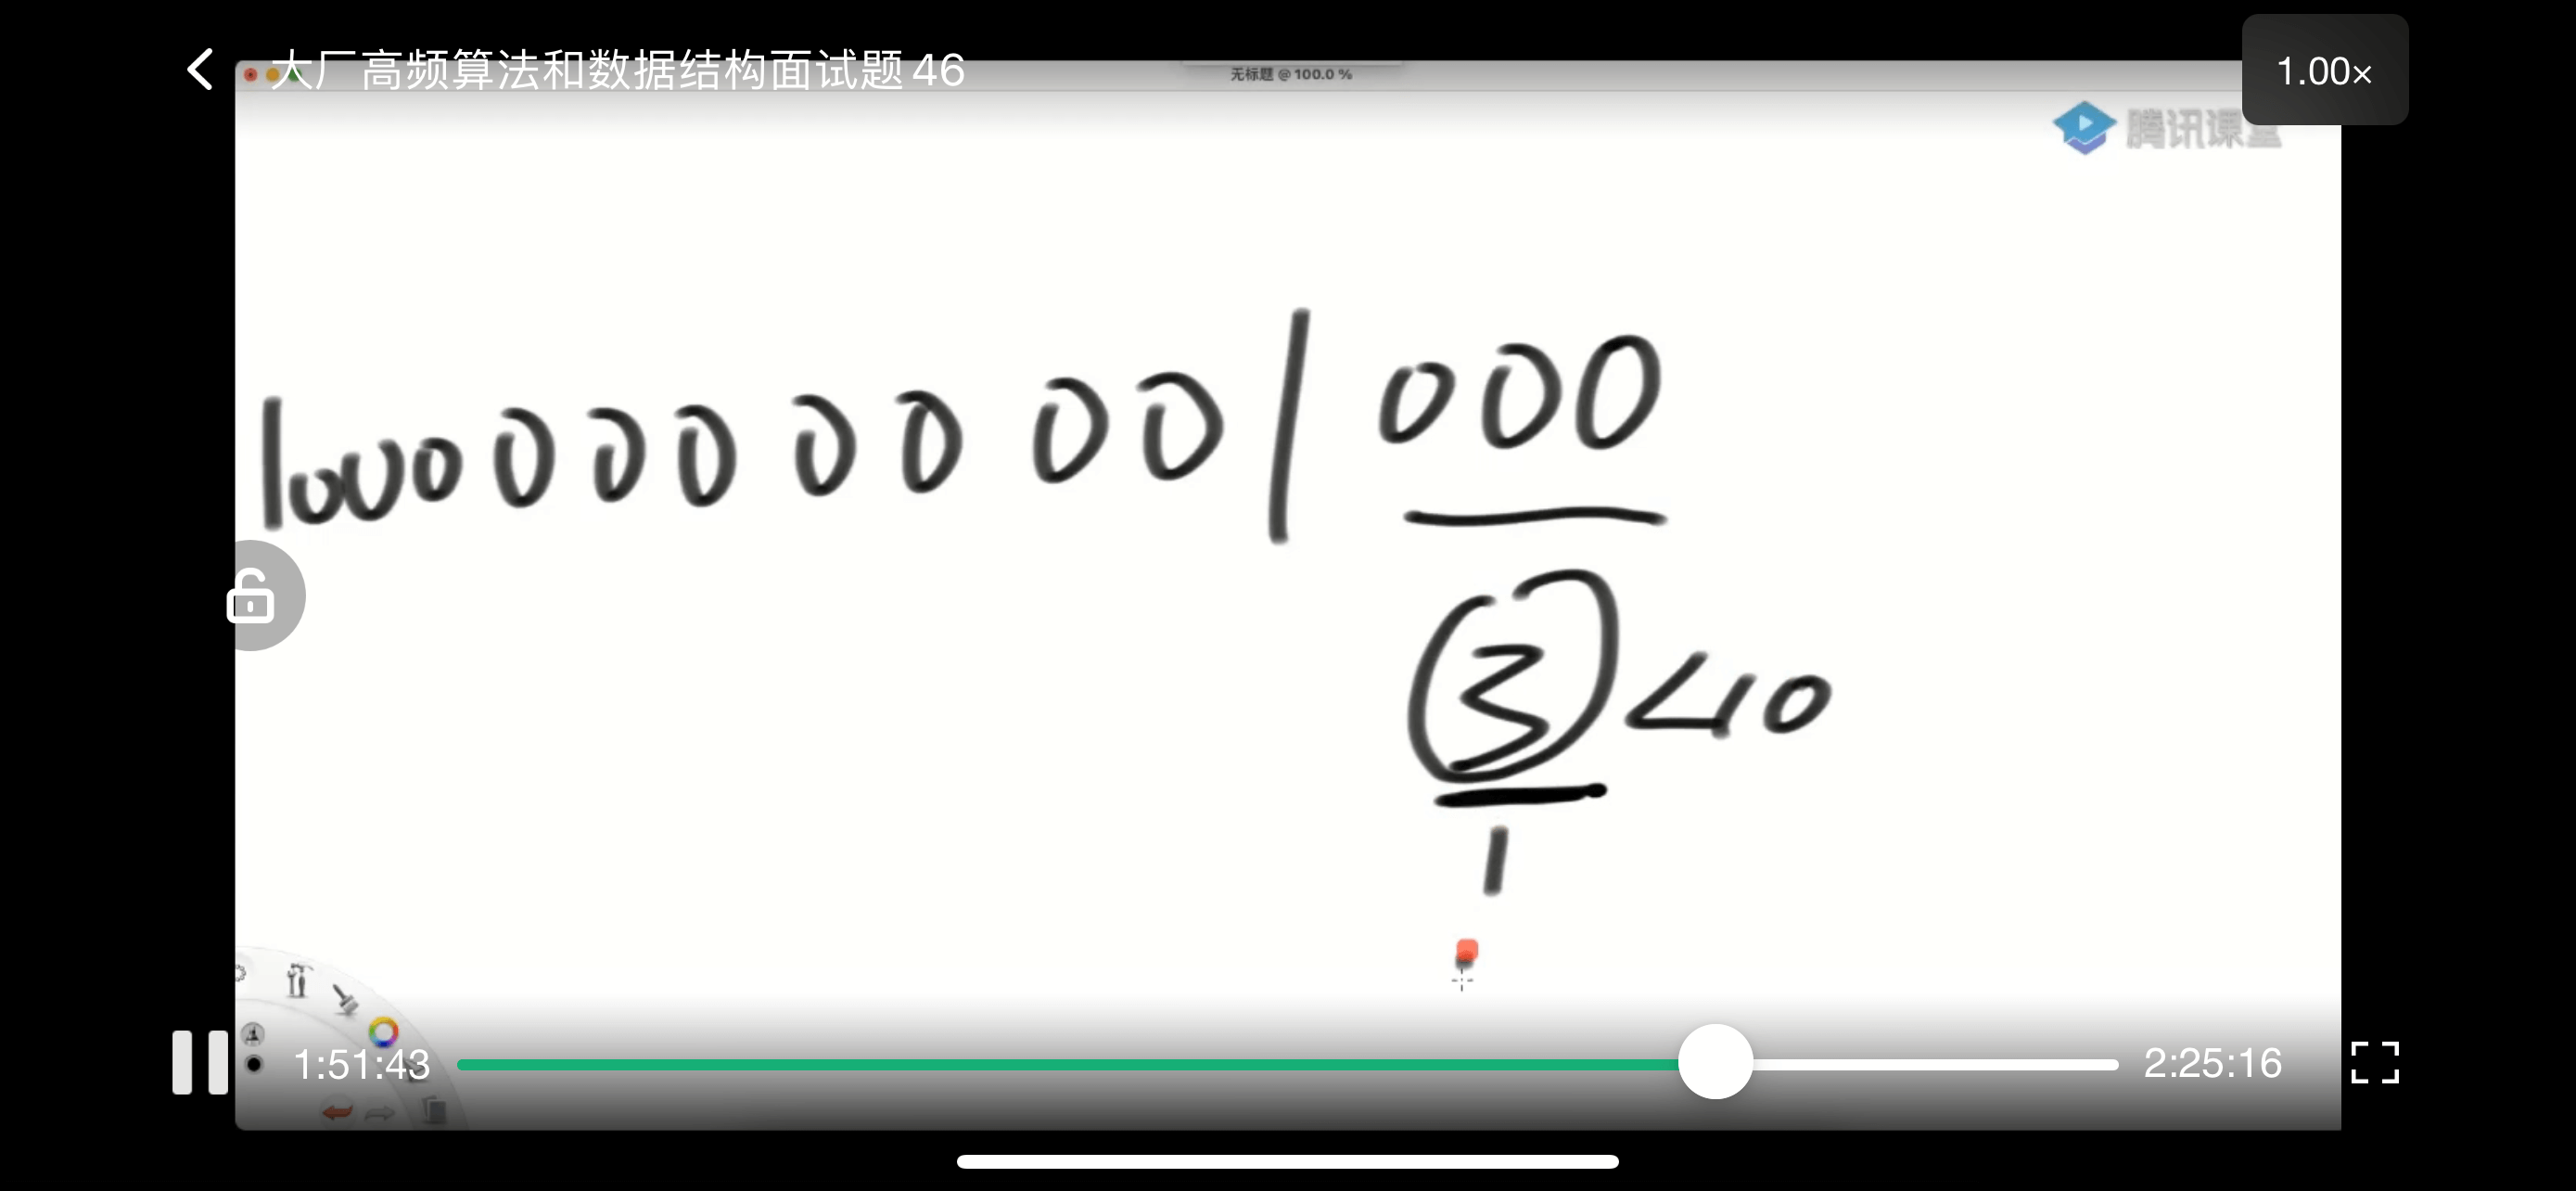 大厂高频算法和数据结构面试题46
无标题 @ 100.0 %
1.00×
腾讯课堂
10000000000|000
3<10
1
1:51:43
2:25:16